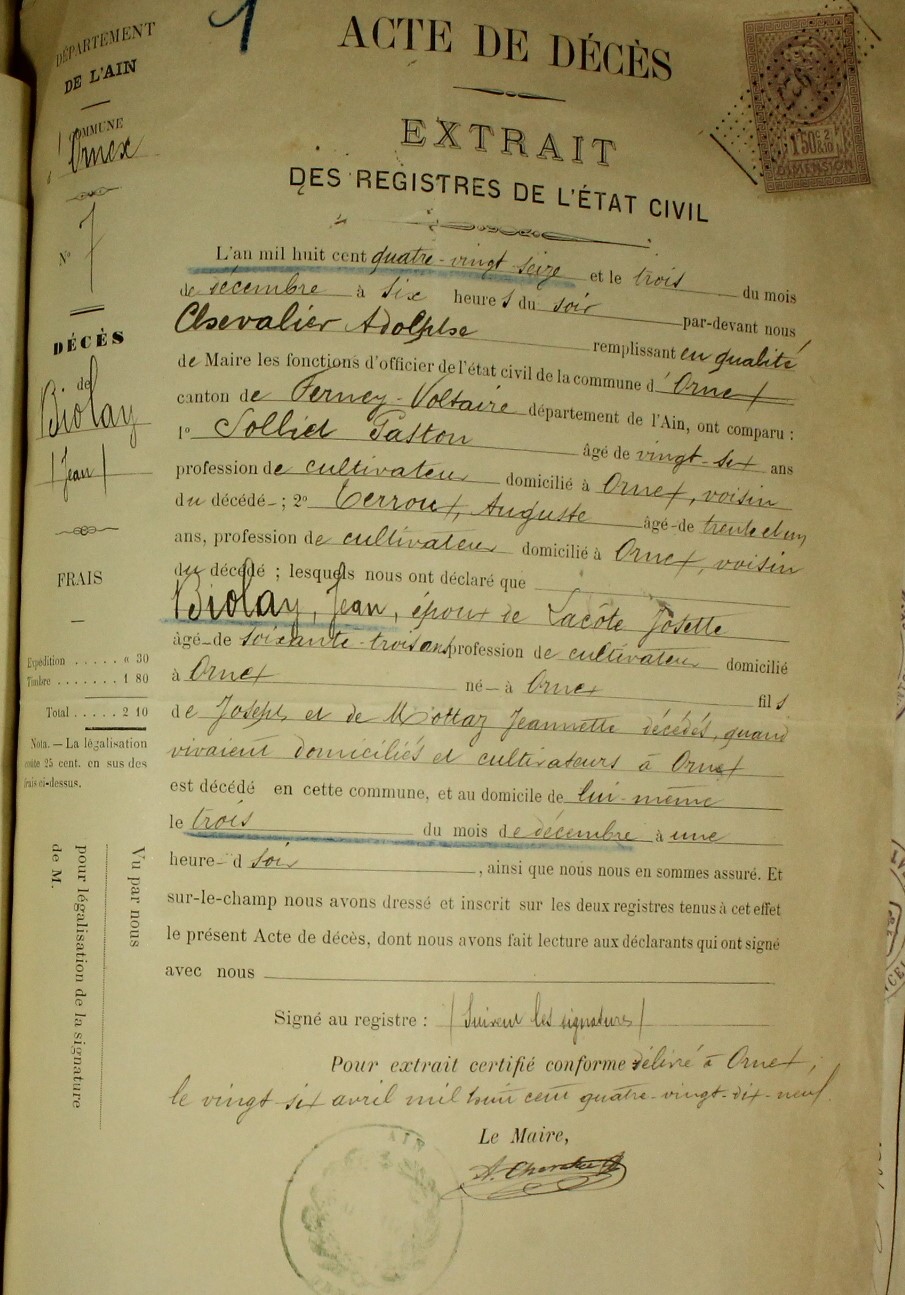 1
DÉPARTEMENT
DE L'AIN
COMMUNE
d'Ornex
N° 7
DÉCÈS
de
Biolay
(Jean)
FRAIS
Expédition . . . . . « 30
Timbre . . . . . . . 1 80
Total . . . . . 2 10
Nota. — La légalisation
coûte 25 cent. en sus des
frais ci-dessus.
Vu par nous
pour légalisation de la signature
de M.
ACTE DE DÉCÈS
EXTRAIT
DES REGISTRES DE L'ÉTAT CIVIL
1 50c 2
DIMENSION
L'an mil huit cent quatre-vingt-seize et le trois du mois
de décembre à six heures du soir par-devant nous
Chevalier Adolphe remplissant en qualité
de Maire les fonctions d'officier de l'état civil de la commune d'Ornex
canton de Ferney-Voltaire département de l'Ain, ont comparu :
1° Solliet Gaston âgé de vingt-six ans
profession de cultivateur domicilié à Ornex, voisin
du décédé ; 2° Terroux, Auguste âgé de trente et un
ans, profession de cultivateur domicilié à Ornex, voisin
du décédé ; lesquels nous ont déclaré que
Biolay, Jean, époux de Lacôte Josette
âgé de soixante-trois ans profession de cultivateur domicilié
à Ornex né à Ornex fils
de Joseph et de Mottaz Jeannette décédés, quand
vivaient domiciliés et cultivateurs à Ornex
est décédé en cette commune, et au domicile de lui-même
le trois du mois de décembre à une
heure d soir, ainsi que nous nous en sommes assuré. Et
sur-le-champ nous avons dressé et inscrit sur les deux registres tenus à cet effet
le présent Acte de décès, dont nous avons fait lecture aux déclarants qui ont signé
avec nous
Signé au registre : (Suivent les signatures)
Pour extrait certifié conforme délivré à Ornex,
le vingt-six avril mil huit cent quatre-vingt-dix-neuf.
Le Maire,
A. Chevalier